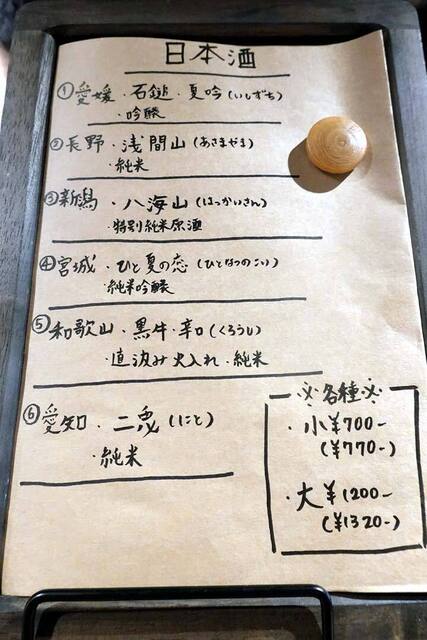 日本酒
①愛媛・石鎚・夏吟(いしずち)
・吟醸
②長野・浅間山(あさまやま)
・純米
③新潟・八海山(はっかいさん)
・特別純米原酒
④宮城・ひと夏の恋(ひとなつのこい)
・純米吟醸
⑤和歌山・黒牛・辛口(くろうし)
・直汲み火入れ・純米
⑥愛知・二兎(にと)
・純米
※各種※
・小¥700-
(¥770-)
・大¥1200-
(¥1320-)